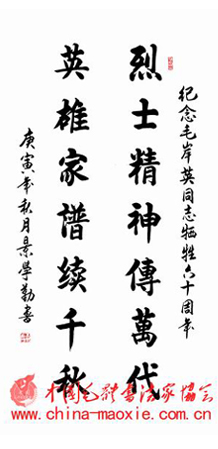 纪念毛岸英同志牺牲六十周年
烈士精神傳萬代
英雄家譜续千秋
庚寅年秋月景學勤書
中国毛體书法家協会
www.china-maoxie.com.cn